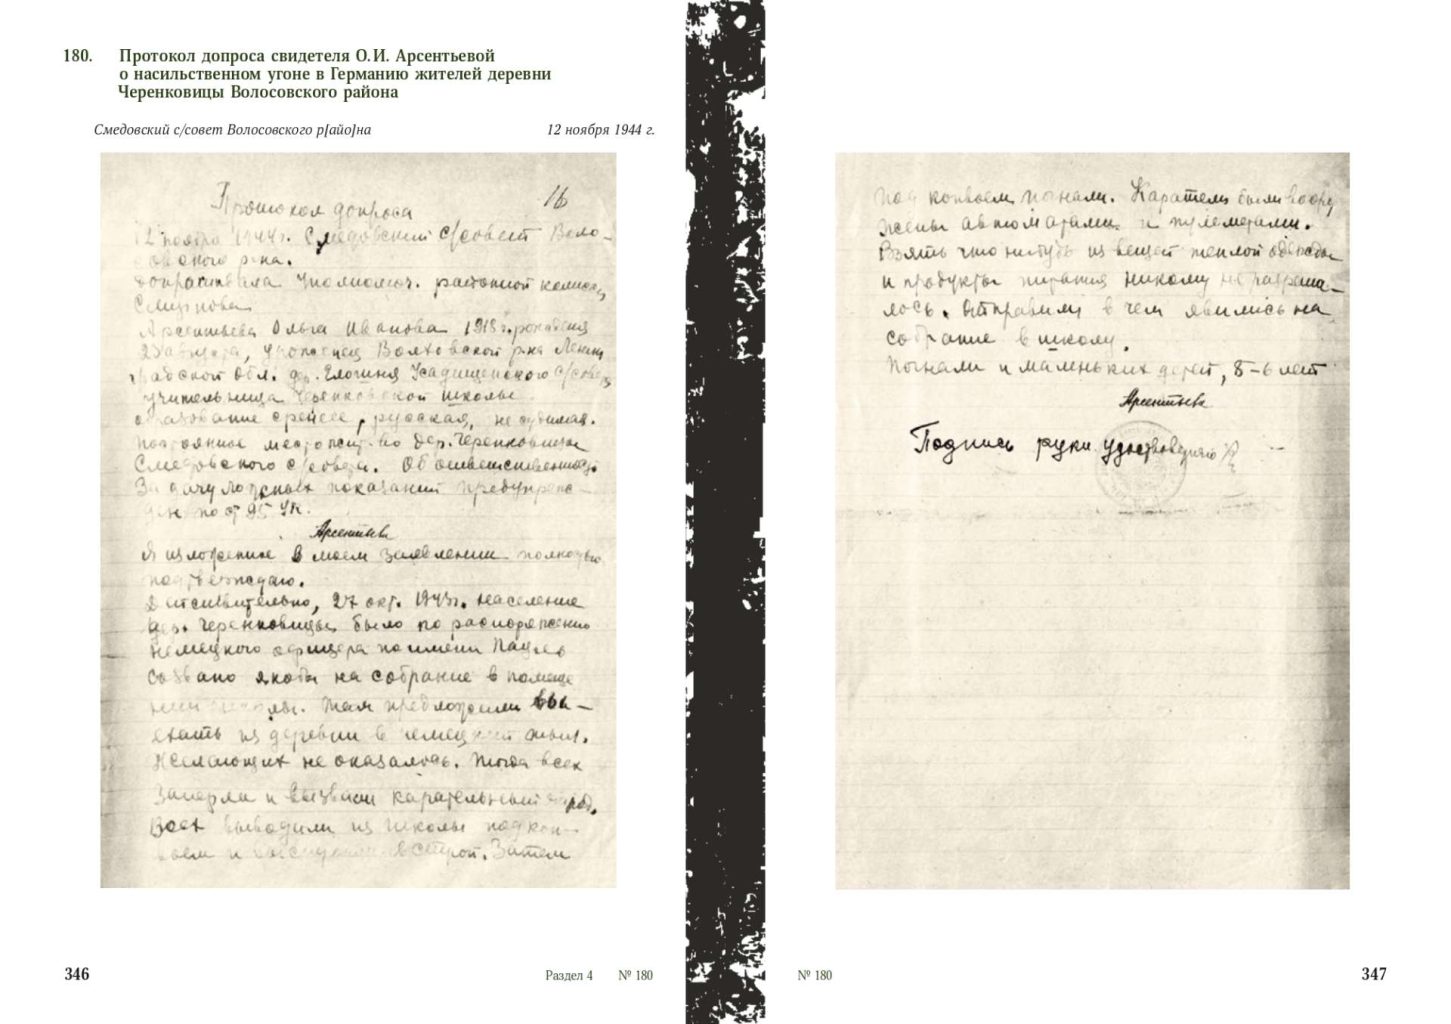 180. Протокол допроса свидетеля О.И. Арсентьевой
о насильственном угоне в Германию жителей деревни
Черенковицы Волосовского района
Смедовский с/совет Волосовского р[айо]на 12 ноября 1944 г.
16
Протокол допроса
12 ноября 1944г. Смедовский с/совет Воло-
совского р-на.
допрашивала Уполномоч. районной комисси
Смирнова
Арсентьева Ольга Ивановна рождения
25 августа, Волховской р-на Ленин
градской Обл. дер. Усадищенского с/совета
учительница школы
образование среднее, русская, не судимая.
постоянное местожит-во дер. Черенковицы
Смедовского с/совета. Об ответственности
За дачу ложных показаний предупреж-
ден по ст 95 УК.
Арсентьева
Я изложение в моем заявлении полностью
подтверждаю.
Действительно, 27 окт. 1943г. население
дер. Черенковицы было по распоряжению
немецкого офицера по имени
созвано якобы на собрание в помеще
нии школы. Там предложили вые-
ехать из деревни в немецкий тыл.
Желающих не оказалось. Тогда всех
Заперли и вызвали карательный отряд.
Всех выводили из школы под кон-
воем и в строй. Затем
под конвоем погнали. Каратели были воору
жены автоматами и пулеметами.
Взять что нибудь из вещей теплой одежды
и продукты питания никому не разреша-
лось. Отправили в чем явились на
собрание в школу.
Погнали и маленьких детей, 8-6 лет
Арсентьева
Подпись руки удостоверяю
346 Раздел 4 № 180
№ 180 347